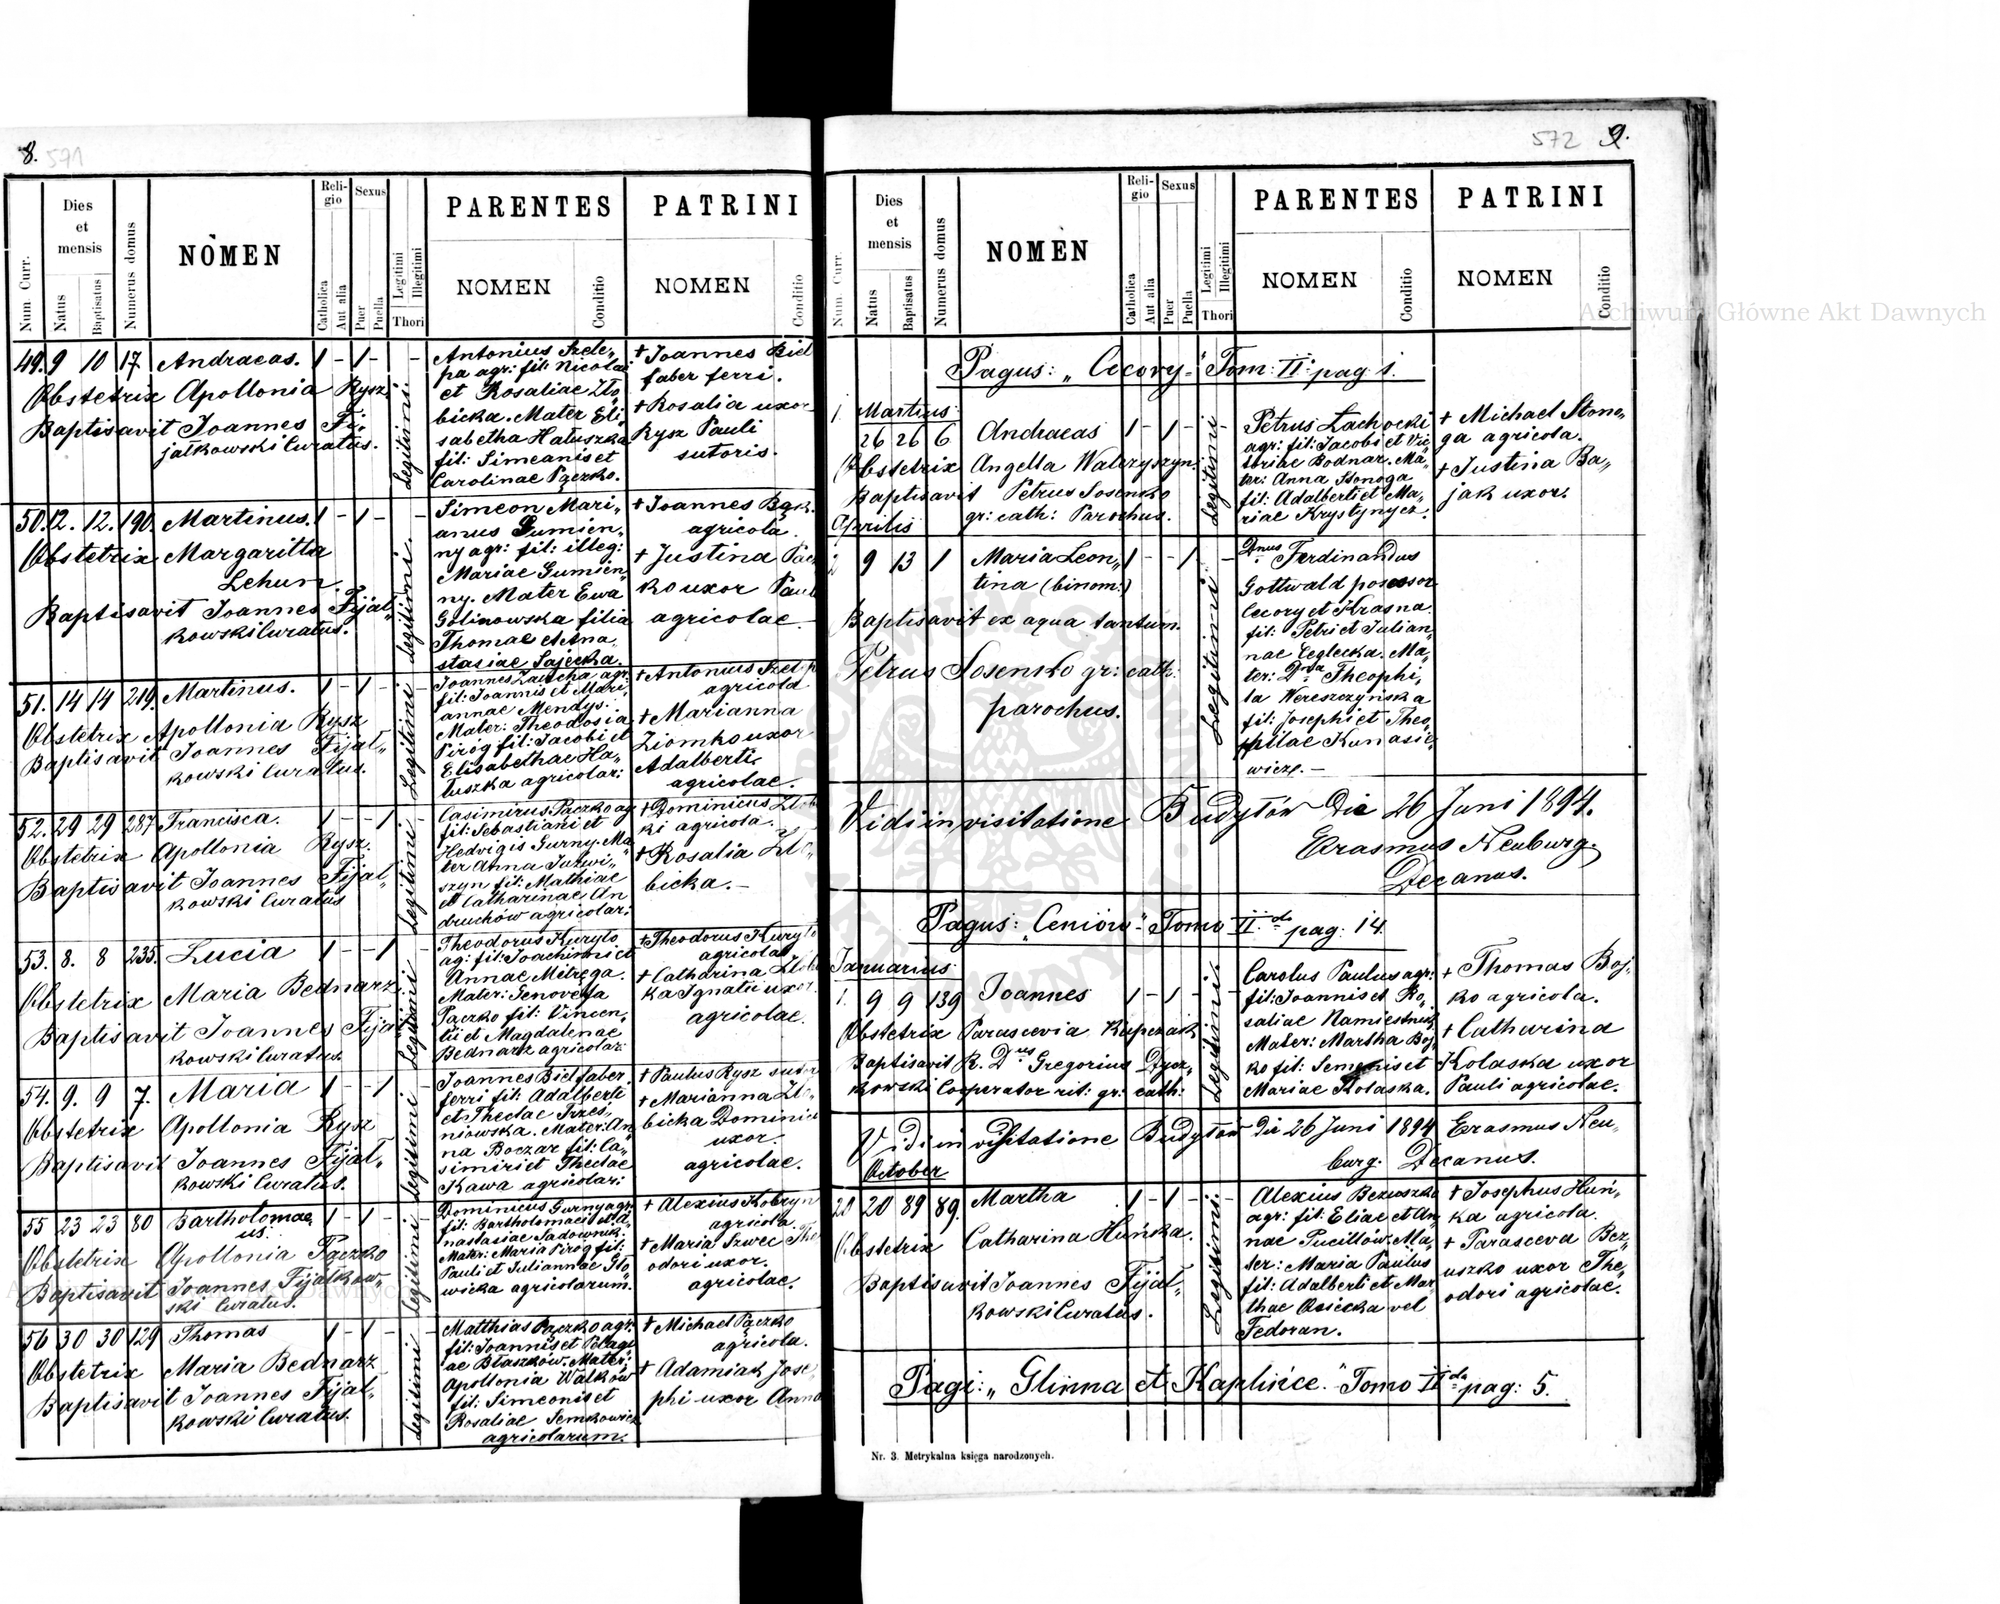 8. 571
Num. Curr.
Dies et mensis
Natus
Baptisatus
Numerus domus
NOMEN
Religio
Catholica
Aut alia
Sexus
Puer
Puella
Legitimi
Illegitimi
Thori
PARENTES
NOMEN
Conditio
PATRINI
NOMEN
Conditio
49. 9 10 17. Andraeas. 1 - 1 - -
Obstetrix Apollonia Rysz
Baptisavit Joannes Fi-
jałkowski Curatus.
Legitimi
Antonius Szele„
pa agr: fil: Nicolai
et Rosaliae Zło
bicka. Mater Eli
sabetha Hatuszka
fil: Simeonis et
Carolinae Pączko.
+ Joannes Biel
faber ferri.
+ Rosalia uxor
Rysz Pauli
sutoris.
50. 12. 12. 190. Martinus. 1 - 1 - -
Obstetrix Margaritta
Lehun
Baptisavit Joannes Fijał„
kowski Curatus.
Legitimi.
Simeon Mari„
anus Gumien„
ny agr: fil: illeg:
Mariae Gumien„
ny. Mater Ewa
Golinowska filia
Thomae et Ana„
stasiae Sajecka.
+ Joannes Bąk.
agricola.
+ Justina Pącz
ko uxor Pauli
agricolae.
51. 14 14 219. Martinus. 1 - 1 - -
Obstetrix Apollonia Rysz
Baptisavit Joannes Fijał„
kowski Curatus.
Legitimi
fil: Joannis et Mari„
annae Mendys.
Mater: Theodosia
Piróg fil: Jacobi et
Elisabethae Ha„
tuszka agricolar:
+ Antonius Szelepa
agricola
+ Marianna
Ziomko uxor
Adalberti
agricolae.
52. 29 29 287 Francisca. 1 - - 1 -
Obstetrix Apollonia Rysz.
Baptisavit Joannes Fijał„
kowski Curatus
Legitimi
Casimirus Pączko ag
fil: Sebastiani et
Hedvigis Gurny. Ma„
ter Anna Juzwi„
szyn fil: Mathiae
et Catharinae An
druchów agricolar:
+ Dominicus Złobi
ki agricola.
+ Rosalia Zło„
bicka. -
53. 8. 8 235. Lucia 1 - - 1 -
Obstetrix Maria Bednarz.
Baptisavit Joannes Fijał
kowski Curatus.
Legitimi
Theodorus Kuryło
ag: fil: Joachimi et
Annae Mitręga.
Mater: Genovefa
Pączko fil: Vincen„
tii et Magdalenae
Bednarz agricolar:
+ Theodorus Kuryło
agricola
+ Catharina Złobi
ka Ignatii uxor.
agricolae.
54. 9. 9 7. Maria 1 - - 1 -
Obstetrix Apollonia Rysz
Baptisavit Joannes Fijał„
kowski Curatus.
Legitimi
Joannes Biel faber
ferri fil: Adalberti
et Theclae Trzes„
niowska. Mater: An
na Boczar fil: Ca„
simiri et Theclae
Kawa agricolar:
+ Paulus Rysz sutor
+ Marianna Zło„
bicka Dominici
uxor.
agricolae.
55 23 23 80 Bartholomae„ 1 - 1 - -
us.
Obstetrix Apollonia Pączko
Baptisavit Joannes Fijałkow„
ski Curatus.
Legitimi
Dominicus Gurny agr.
fil: Bartholomaei et A„
nastasiae Sadownik.
Mater: Maria Piróg fil:
Pauli et Juliannae Gło
wicka agricolarum.
+ Alexius Kobryn
agricola.
+ Maria Szwec The
odori uxor.
agricolae.
56 30 30 129 Thomas 1 - 1 - -
Obstetrix Maria Bednarz
Baptisavit Joannes Fijał„
kowski Curatus.
Legitimi
Matthias Pączko agr.
fil: Joannis et Pelagi
ae Błaszków. Mater:
Apollonia Walków
fil: Simeonis et
Rosaliae Semkowicz
agricolarum.
+ Michael Pączko
agricola.
+ Adamiak Jose„
phi uxor Anna
572 9.
Num. Curr.
Dies et mensis
Natus
Baptisatus
Numerus domus
NOMEN
Religio
Catholica
Aut alia
Sexus
Puer
Puella
Legitimi
Illegitimi
Thori
PARENTES
NOMEN
Conditio
PATRINI
NOMEN
Conditio
Archiwum Główne Akt Dawnych
Pagus: „Cecory" Tom: II: pag 1.
Martius
1. 26 26 6 Andraeas 1 - 1 - -
Obstetrix Angella Walczyszyn.
Baptisavit Petrus Sosenko
gr: cath: Parochus.
Legitimi
Petrus Lachocki
agr: fil: Jacobi et Vic
toriae Bodnar. Ma„
ter: Anna Stonoga
fil: Adalberti et Ma„
riae Krystynycz.
+ Michael Stono„
ga agricola.
+ Justina Ba„
jak uxor.
Aprilis
2 9 13 1 Maria Leon„ 1 - - 1 -
tina (binom:)
Baptisavit ex aqua tantum.
Petrus Sosenko gr: cath:
parochus.
Legitimi
Dnus Ferdinandus
Gottwald possessor
Cecory et Krasna.
fil: Petri et Julian„
nae Ceglecka. Ma„
ter: Dna Theophi„
la Wereszczyńska
fil: Josephi et Theo„
philae Kunasie„
wicz. -
Vidi in visitatione Budyłów Die 26 Juni 1894.
Erasmus Neuburg.
Decanus.
Pagus: „Ceniów" Tomo II.do pag: 14.
Januarius
1. 9 9 139 Joannes 1 - 1 - -
Obstetrix Parascevia Kupczak
Baptisavit R. Dnus Gregorius Dycz„
kowski Cooperator rit: gr: cath:
Legitimi.
Carolus Paulus agr:
fil: Joannis et Ro„
saliae Namiestnik
Mater: Martha Boj„
ko fil: Semenis et
Mariae Kolaska.
+ Thomas Boj„
ko agricola.
+ Catharina
Kolaska uxor
Pauli agricolae.
Vidi in visitatione Budyłów Die 26 Juni 1894 Erasmus Neu„
burg. Decanus.
October
20 89 89. Martha 1 - 1 - -
Obstetrix Catharina Huńka.
Baptisavit Joannes Fijał„
kowski Curatus.
Legitimi.
Alexius Bezuszko
agr: fil: Eliae et An
nae Puciłów. Ma„
ter: Maria Paulus
fil: Adalberti et Mar
thae Osiecka vel
Fedoran.
+ Josephus Huń„
ka agricola.
+ Parasceva Bez„
uszko uxor The„
odori agricolae.
Pagi: „Glinna et Kaplińce." Tomo II.do pag: 5.
Nr. 3. Metrykalna księga narodzonych.